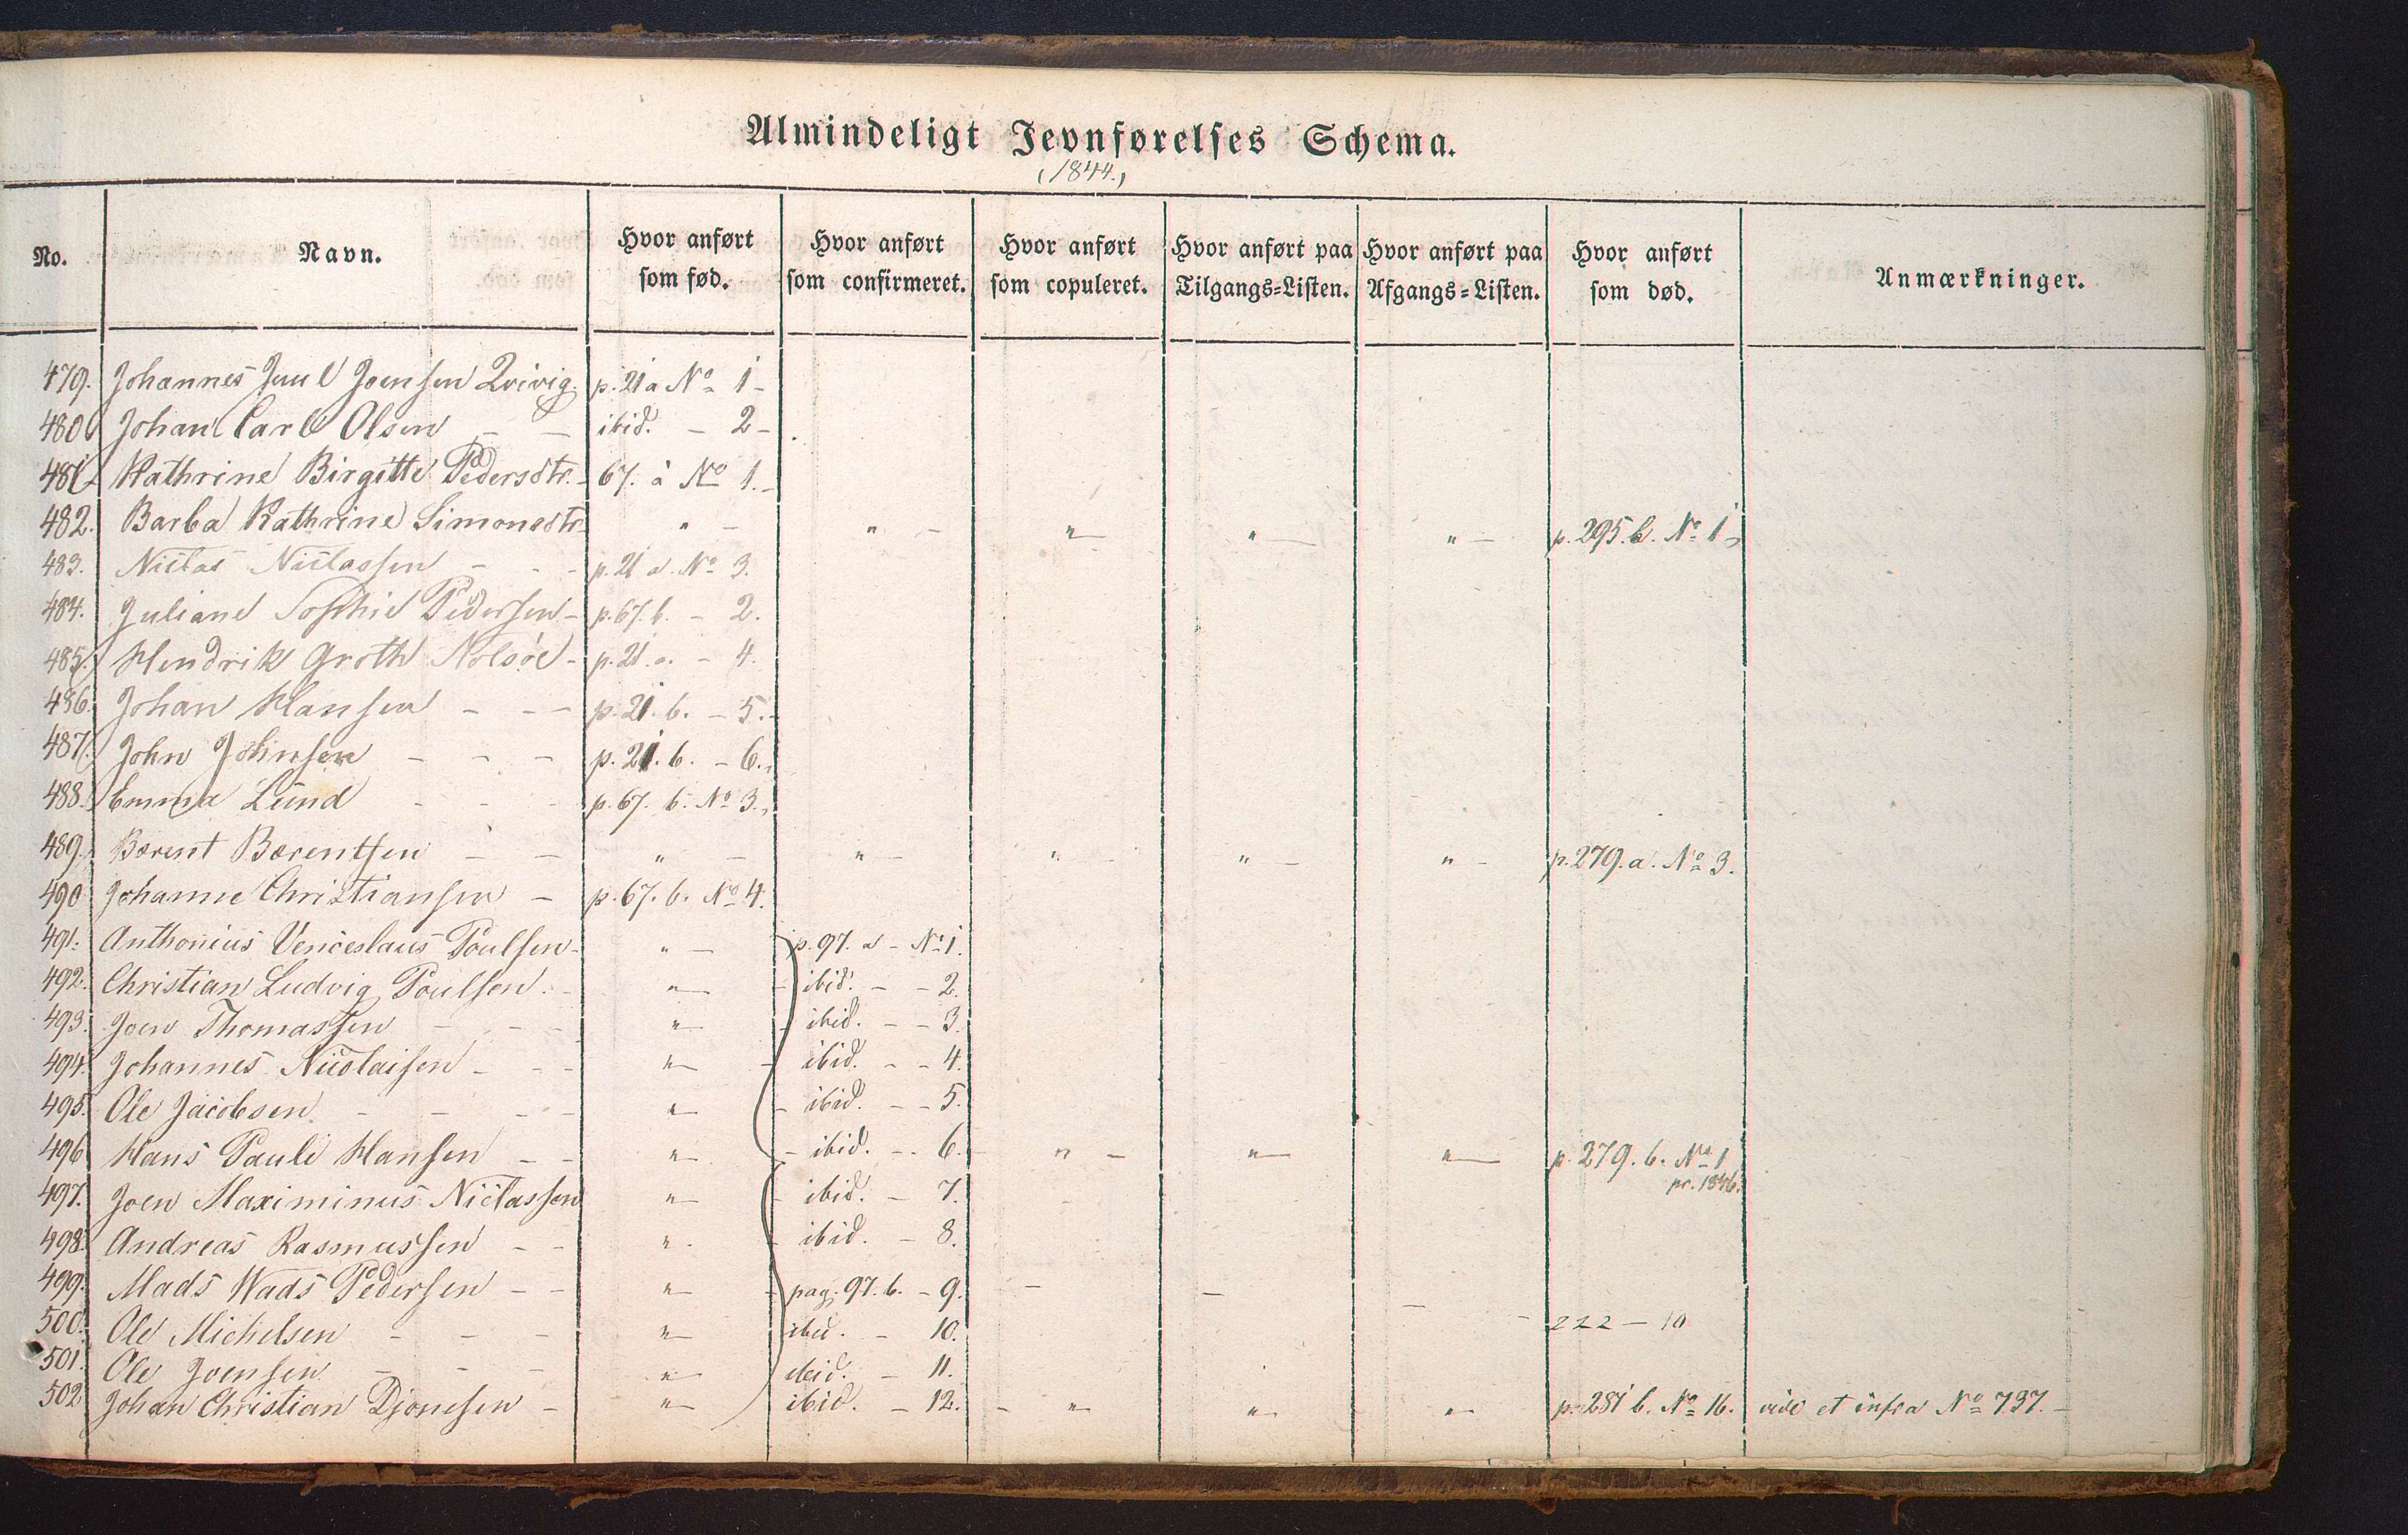 Almindeligt Jevnførelses Schema.
(1844.)
No. Navn. Hvor anført som fød. Hvor anført som confirmeret. Hvor anført som copuleret. Hvor anført paa Tilgangs=Listen. Hvor anført paa Afgangs=Listen. Hvor anført som død. Anmærkninger.
479. Johannes Juul Joensen Qvivig p. 21 a No 1 -
480. Johan Carl Olsen - - ibid. - 2 -
481. Kathrine Birgitte Pedersdtr. - 67. a No 1. -
482. Barba Kathrine Simonsdtr. " - " - " - " - " - p. 295. b. No 1 -
483. Niclas Niclassen - - - p. 21 a. No 3.
484. Juliane Sophie Pedersen - p. 67. b. - 2.
485. Hendrik Groth Nolsøe - p. 21. a. - 4.
486. Johan Hansen - - - p. 21. b. - 5. -
487. John Johnsen - - - p. 21. b. - 6.
488. Emma Lund - - - p. 67. b. No 3.
489. Berent Berentsen - - " - " - " - " - " - p. 279. a. No 3.
490. Johanne Christiansen - p. 67. b. No 4.
491. Anthonius Venceslaus Poulsen - " - p. 97. a - No 1.
492. Christian Ludvig Poulsen. - " - - ibid. - - 2.
493. Joen Thomassen - - - " - - ibid. - - 3.
494. Johannes Nicolaisen - - - " - - ibid. - - 4.
495. Ole Jacobsen - - - - " - - ibid. - - 5.
496. Hans Pauli Hansen - - " - - ibid. - - 6. - " - " - " - p. 279. b. No 1
pr. 1846.
497. Joen Maximinus Niclassen " - - ibid. - 7.
498. Andreas Rasmussen - - " - - ibid. - 8.
499. Mads Wads Pedersen - - " - - pag. 97. b. - 9. - - -
500. Ole Michelsen - - - " - ibid. - 10. - 222 - 10
501. Ole Joensen - - - " - ibid. - 11.
502. Johan Christian Djonesen - " - ibid. - 12. - " - " - " - p. 281 b. No 16. vide et infra No 737. -